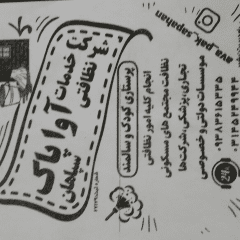 شرکت خدمات
نظافتی
آوا پاک
سپاهان
ava_pak_sapahan
موسسات دولتی و خصوصی
تجاری، پزشکی، شرکت‌ها
نظافت مجتمع های مسکونی
انجام کلیه امور نظافتی
پرستاری کودک و سالمند